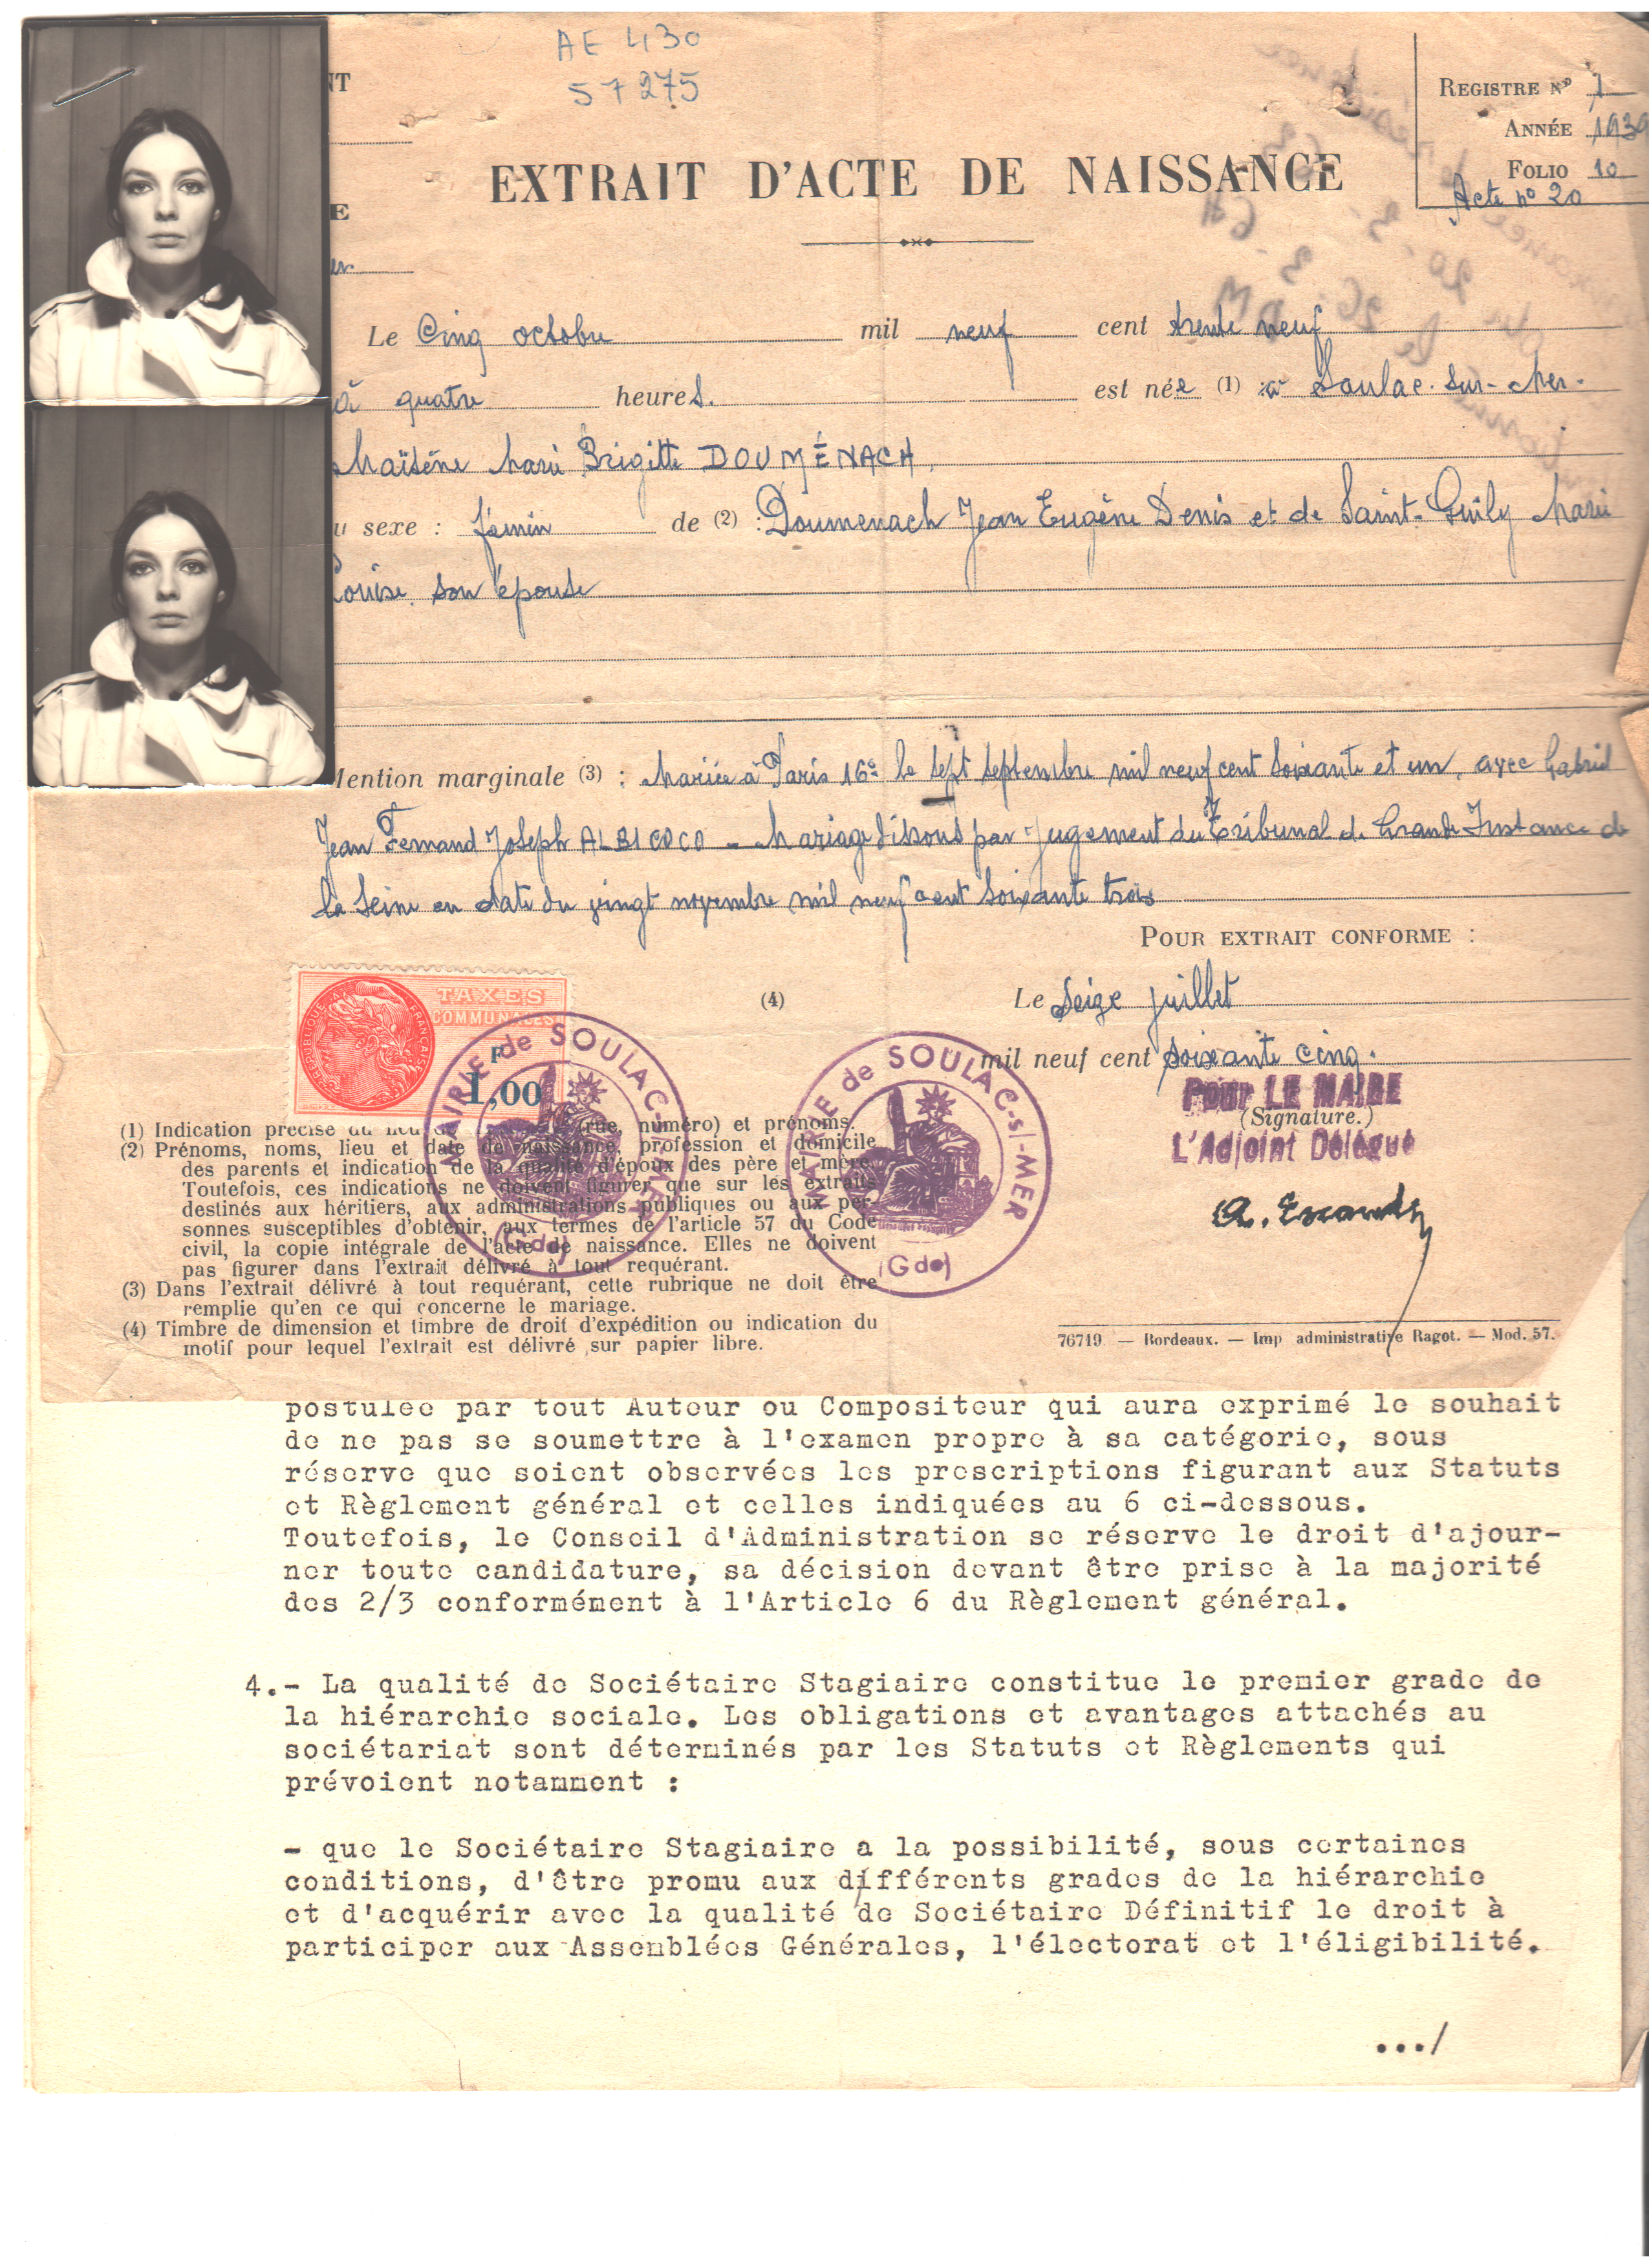 AE 430
57275
NT
E
er
REGISTRE Nº 1
ANNÉE 1939
FOLIO 10
Acte nº 20
EXTRAIT D'ACTE DE NAISSANCE
Le Cinq octobre mil neuf cent trente neuf
à quatre heures. est née (1) : à Soulac-sur-Mer.
Maïtène Marie Brigitte DOUMÉNACH,
u sexe : fémin de (2) : Doumenach Jean Eugène Denis et de Saint-Guily Marie
Louise son épouse
Mention marginale (3) : Mariée à Paris 16e le sept septembre mil neuf cent soixante et un, avec Gabriel
Jean Fernand Joseph ALBICOCO - Mariage dissous par Jugement du Tribunal de Grande Instance de
la Seine en date du vingt novembre mil neuf cent soixante trois
POUR EXTRAIT CONFORME :
(4) Le seize juillet
mil neuf cent soixante cinq.
RÉPUBLIQUE FRANÇAISE
TAXES
COMMUNALES
F
1,00
MAIRIE de SOULAC-s/-MER
(Gde)
MAIRIE de SOULAC-s/-MER
(Gde)
POUR LE MAIRE
(Signature.)
L'Adjoint Délégué
(1) Indication précise du lieu (rue, numéro) et prénoms.
(2) Prénoms, noms, lieu et date de naissance, profession et domicile
des parents et indication de la qualité d'époux des père et mère.
Toutefois, ces indications ne doivent figurer que sur les extraits
destinés aux héritiers, aux administrations publiques ou aux per-
sonnes susceptibles d'obtenir, aux termes de l'article 57 du Code
civil, la copie intégrale de l'acte de naissance. Elles ne doivent
pas figurer dans l'extrait délivré à tout requérant.
(3) Dans l'extrait délivré à tout requérant, cette rubrique ne doit être
remplie qu'en ce qui concerne le mariage.
(4) Timbre de dimension et timbre de droit d'expédition ou indication du
motif pour lequel l'extrait est délivré sur papier libre.
76719 — Bordeaux. — Imp administrative Ragot. — Mod. 57.
postulée par tout Auteur ou Compositeur qui aura exprimé le souhait
de ne pas se soumettre à l'examen propre à sa catégorie, sous
réserve que soient observées les prescriptions figurant aux Statuts
et Règlement général et celles indiquées au 6 ci-dessous.
Toutefois, le Conseil d'Administration se réserve le droit d'ajour-
ner toute candidature, sa décision devant être prise à la majorité
des 2/3 conformément à l'Article 6 du Règlement général.
4.- La qualité de Sociétaire Stagiaire constitue le premier grade de
la hiérarchie sociale. Les obligations et avantages attachés au
sociétariat sont déterminés par les Statuts et Règlements qui
prévoient notamment :
- que le Sociétaire Stagiaire a la possibilité, sous certaines
conditions, d'être promu aux différents grades de la hiérarchie
et d'acquérir avec la qualité de Sociétaire Définitif le droit à
participer aux Assemblées Générales, l'électorat et l'éligibilité.
.../